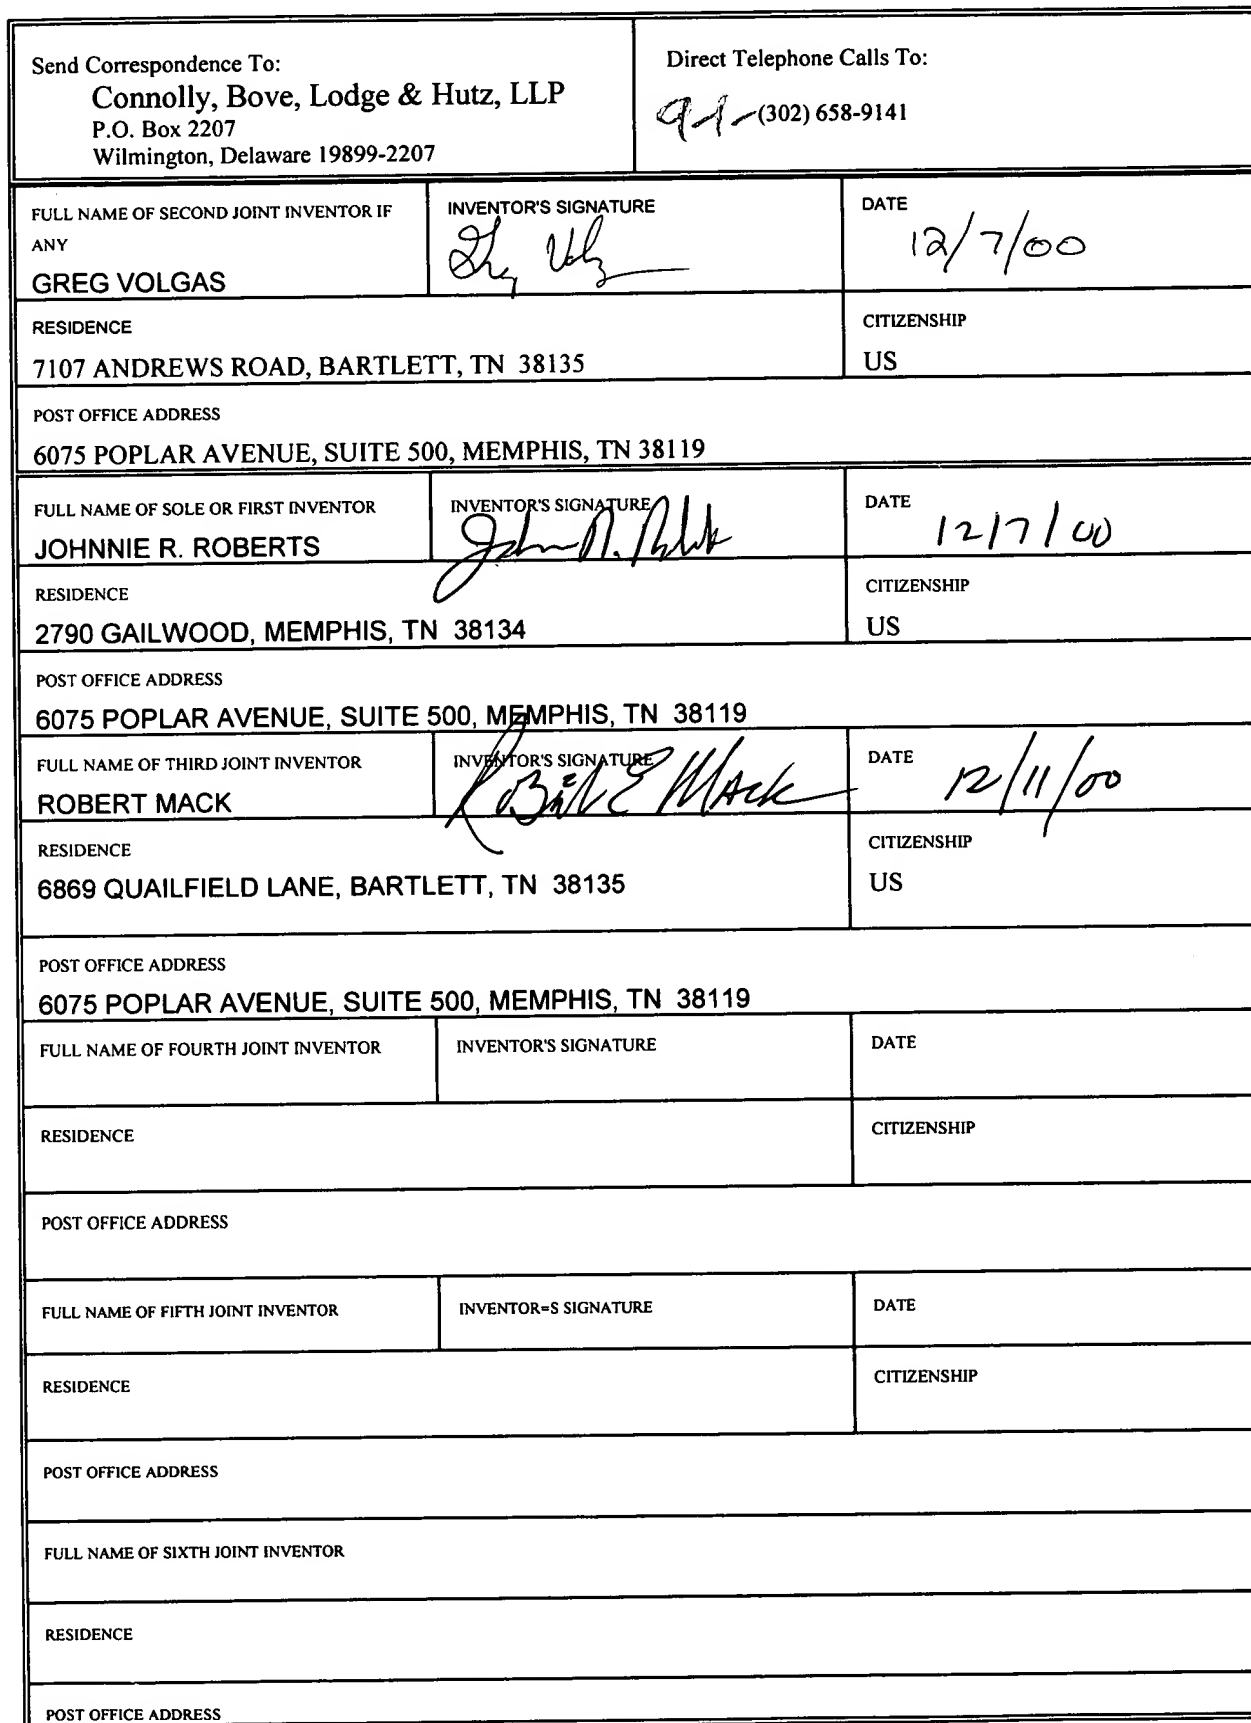 Send Correspondence To:
Connolly, Bove, Lodge & Hutz, LLP
P.O. Box 2207
Wilmington, Delaware 19899-2207
Direct Telephone Calls To:
(302) 658-9141
FULL NAME OF SECOND JOINT INVENTOR IF
ANY
GREG VOLGAS
INVENTOR'S SIGNATURE
DATE
12/7/00
RESIDENCE
7107 ANDREWS ROAD, BARTLETT, TN 38135
CITIZENSHIP
US
POST OFFICE ADDRESS
6075 POPLAR AVENUE, SUITE 500, MEMPHIS, TN 38119
FULL NAME OF SOLE OR FIRST INVENTOR
JOHNNIE R. ROBERTS
INVENTOR'S SIGNATURE
DATE
12/7/00
RESIDENCE
2790 GAILWOOD, MEMPHIS, TN 38134
CITIZENSHIP
US
POST OFFICE ADDRESS
6075 POPLAR AVENUE, SUITE 500, MEMPHIS, TN 38119
FULL NAME OF THIRD JOINT INVENTOR
ROBERT MACK
INVENTOR'S SIGNATURE
Robert E Mack
DATE
12/11/00
RESIDENCE
6869 QUAILFIELD LANE, BARTLETT, TN 38135
CITIZENSHIP
US
POST OFFICE ADDRESS
6075 POPLAR AVENUE, SUITE 500, MEMPHIS, TN 38119
FULL NAME OF FOURTH JOINT INVENTOR
INVENTOR'S SIGNATURE
DATE
RESIDENCE
CITIZENSHIP
POST OFFICE ADDRESS
FULL NAME OF FIFTH JOINT INVENTOR
INVENTOR=S SIGNATURE
DATE
RESIDENCE
CITIZENSHIP
POST OFFICE ADDRESS
FULL NAME OF SIXTH JOINT INVENTOR
RESIDENCE
POST OFFICE ADDRESS